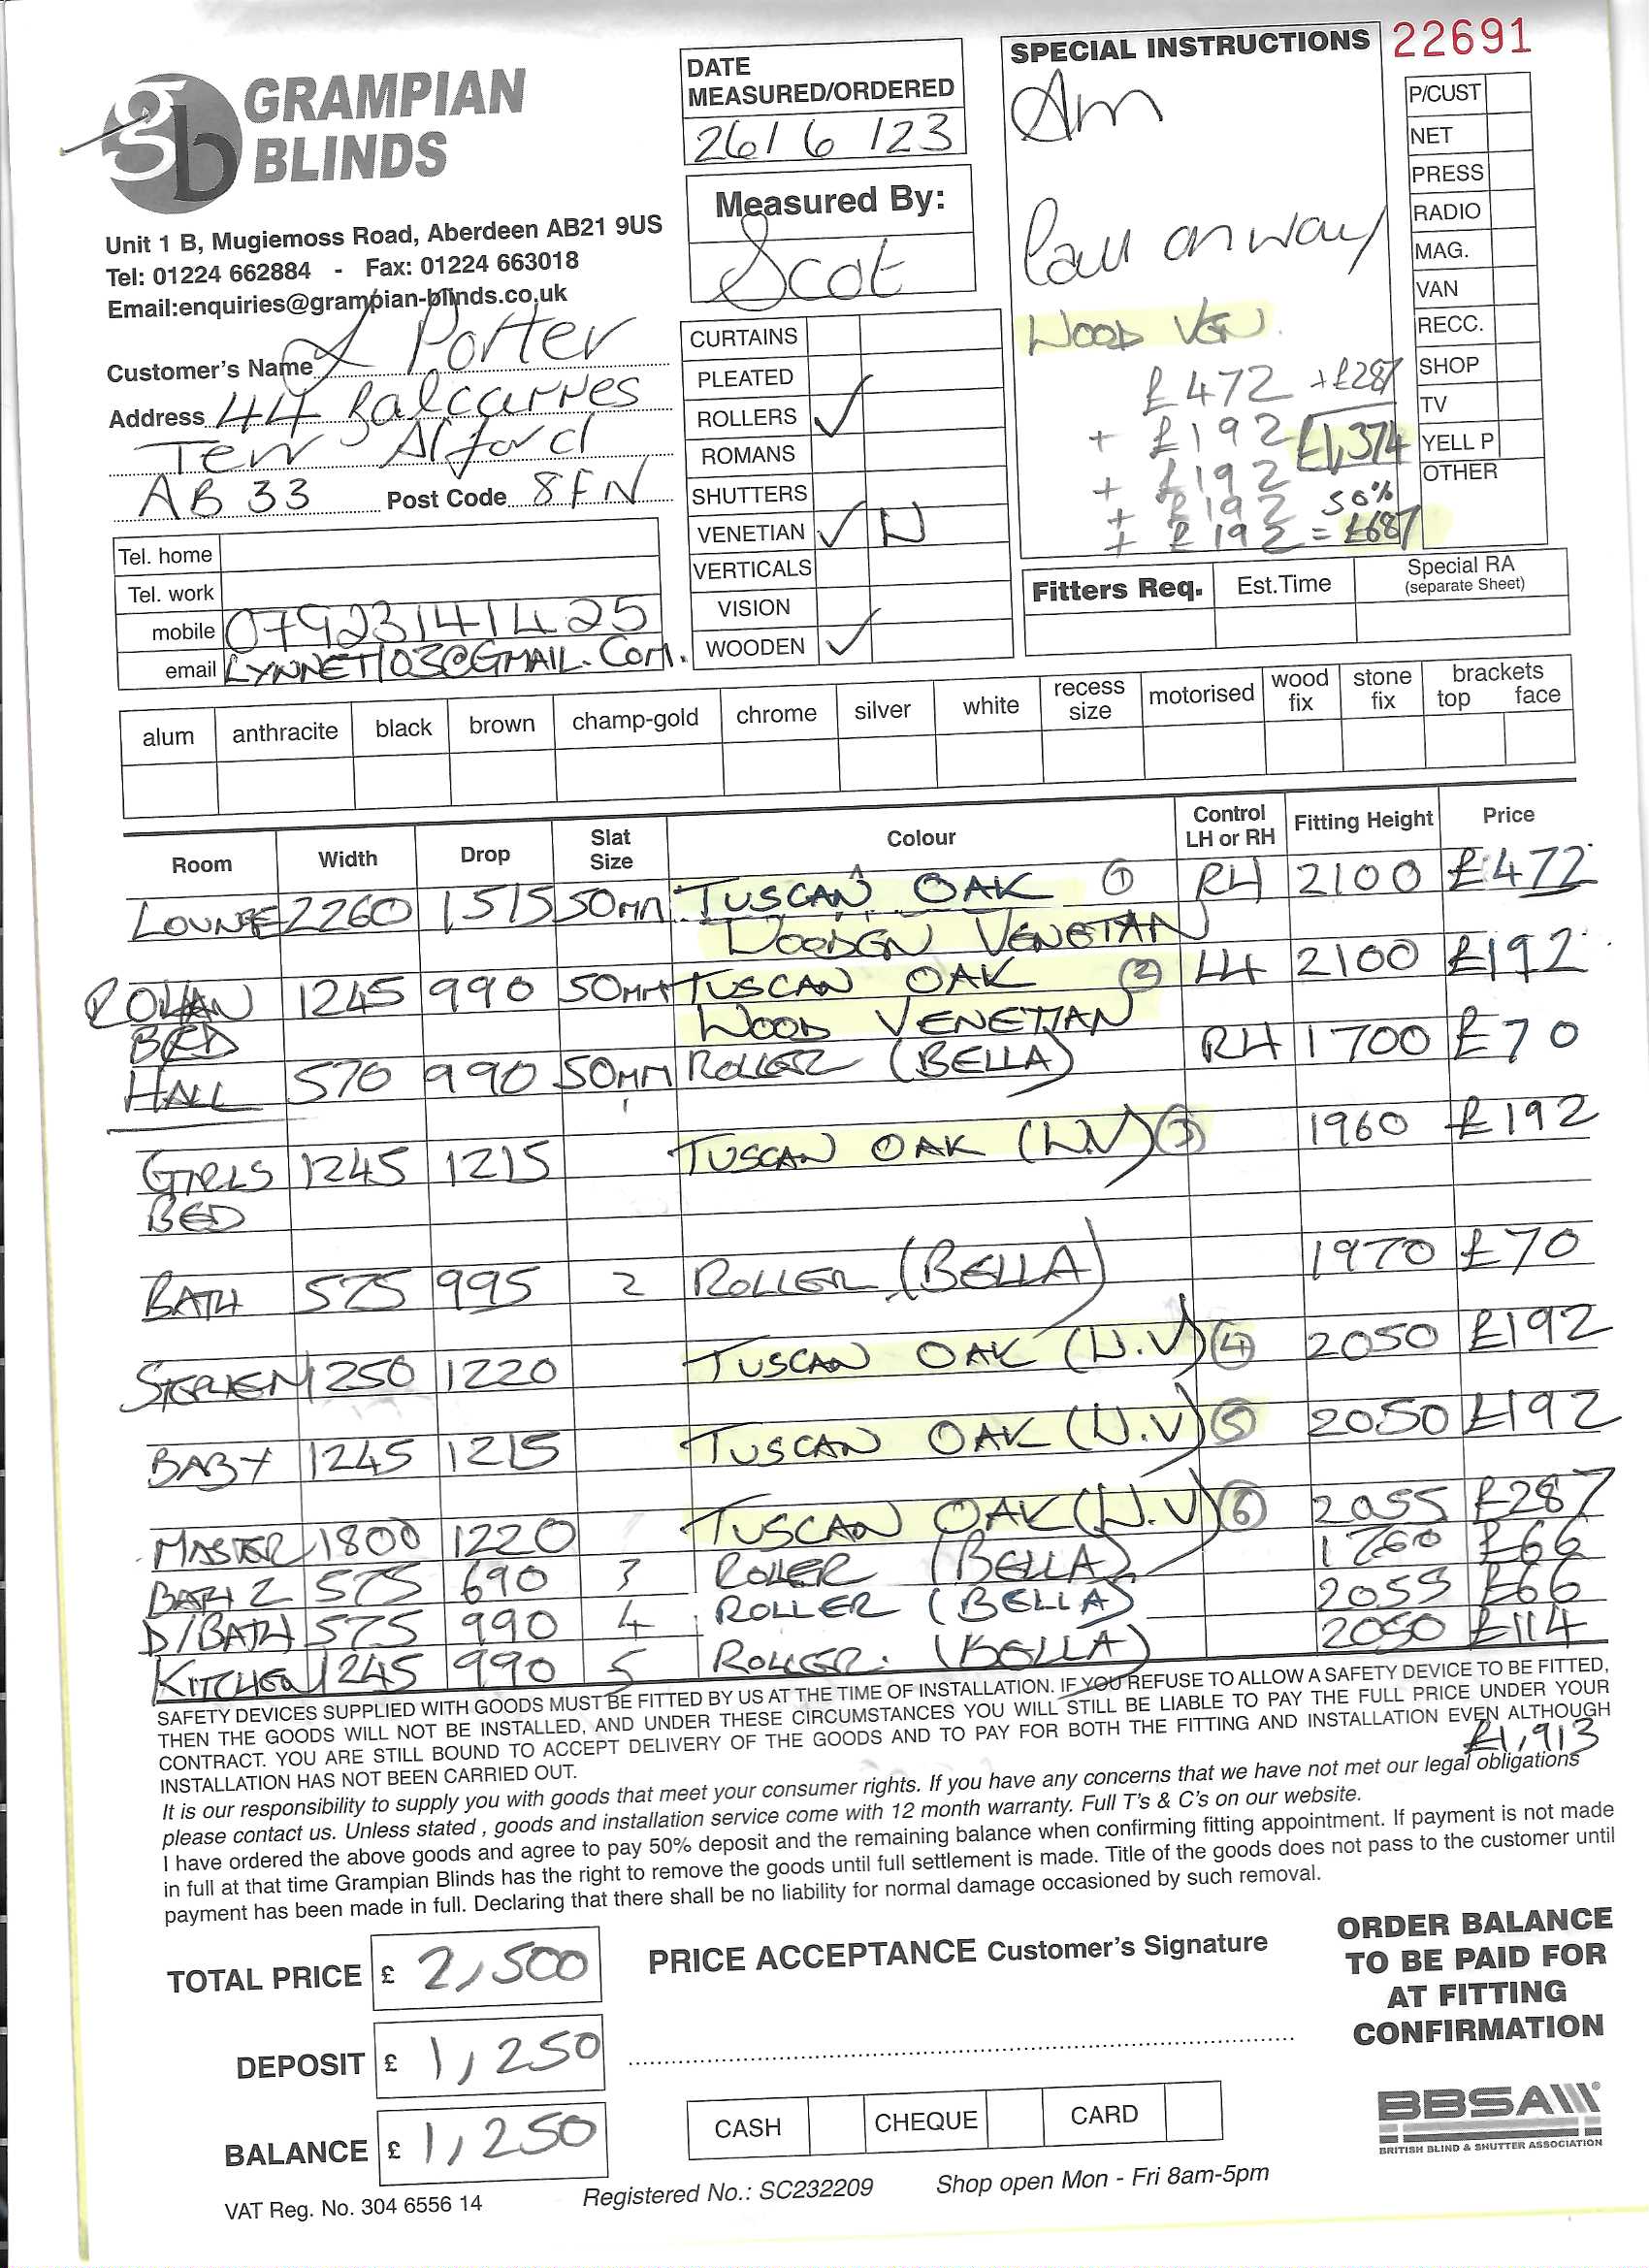 22691
GRAMPIAN
BLINDS
Unit 1 B, Mugiemoss Road, Aberdeen AB21 9US
Tel: 01224 662884 - Fax: 01224 663018
Email:enquiries@grampian-blinds.co.uk
Customer's Name L Porter
Address 44 Balcarres
Terr Alford
AB 33 Post Code 8FN
Tel. home
Tel. work
mobile 07923141425
email LYNNET103@GMAIL.COM.
DATE
MEASURED/ORDERED
26/6/23
Measured By:
Scot
CURTAINS
PLEATED
ROLLERS ✓
ROMANS
SHUTTERS
VENETIAN ✓ W
VERTICALS
VISION
WOODEN ✓
SPECIAL INSTRUCTIONS
Am
Call on way
WOOD VEN.
£472 + £287
+ £192 £1,374
+ £192
+ £192 50%
+ £192 = £687
P/CUST
NET
PRESS
RADIO
MAG.
VAN
RECC.
SHOP
TV
YELL P
OTHER
Fitters Req. Est.Time Special RA
(separate Sheet)
alum anthracite black brown champ-gold chrome silver white recess size motorised wood fix stone fix brackets top face
Room Width Drop Slat Size Colour Control LH or RH Fitting Height Price
LOUNGE 2260 1515 50mm TUSCAN OAK ① RH 2100 £472
WOODEN VENETIAN
ROHAN 1245 990 50mm TUSCAN OAK ② LH 2100 £192
BED WOOD VENETIAN
HALL 570 990 50mm ROLLER (BELLA) RH 1700 £70
1
GIRLS 1245 1215 TUSCAN OAK (W.V) ③ 1960 £192
BED
BATH 575 995 2 ROLLER (BELLA) 1970 £70
STEPHEN 1250 1220 TUSCAN OAK (W.V) ④ 2050 £192
BABY 1245 1215 TUSCAN OAK (W.V) ⑤ 2050 £192
MASTER 1800 1220 TUSCAN OAK (W.V) ⑥ 2055 £287
BATH 2 575 690 3 ROLLER (BELLA) 1760 £66
D/BATH 575 990 4 ROLLER (BELLA) 2055 £66
KITCHEN 1245 990 5 ROLLER. (BELLA) 2050 £114
SAFETY DEVICES SUPPLIED WITH GOODS MUST BE FITTED BY US AT THE TIME OF INSTALLATION. IF YOU REFUSE TO ALLOW A SAFETY DEVICE TO BE FITTED,
THEN THE GOODS WILL NOT BE INSTALLED, AND UNDER THESE CIRCUMSTANCES YOU WILL STILL BE LIABLE TO PAY THE FULL PRICE UNDER YOUR
CONTRACT. YOU ARE STILL BOUND TO ACCEPT DELIVERY OF THE GOODS AND TO PAY FOR BOTH THE FITTING AND INSTALLATION EVEN ALTHOUGH
INSTALLATION HAS NOT BEEN CARRIED OUT.
£1,913
It is our responsibility to supply you with goods that meet your consumer rights. If you have any concerns that we have not met our legal obligations
please contact us. Unless stated , goods and installation service come with 12 month warranty. Full T's & C's on our website.
I have ordered the above goods and agree to pay 50% deposit and the remaining balance when confirming fitting appointment. If payment is not made
in full at that time Grampian Blinds has the right to remove the goods until full settlement is made. Title of the goods does not pass to the customer until
payment has been made in full. Declaring that there shall be no liability for normal damage occasioned by such removal.
TOTAL PRICE £ 2,500
DEPOSIT £ 1,250
BALANCE £ 1,250
PRICE ACCEPTANCE Customer's Signature
CASH CHEQUE CARD
ORDER BALANCE
TO BE PAID FOR
AT FITTING
CONFIRMATION
BBSA
BRITISH BLIND & SHUTTER ASSOCIATION
VAT Reg. No. 304 6556 14
Registered No.: SC232209
Shop open Mon - Fri 8am-5pm